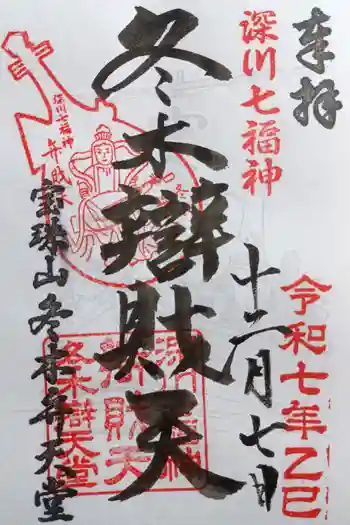 奉拝
深川七福神
令和七年乙巳
十二月七日
冬木辯財天
深川七福神
弁財天
宝珠山冬木弁天堂
深川七福神
冬木辯財天
冬木辯天堂